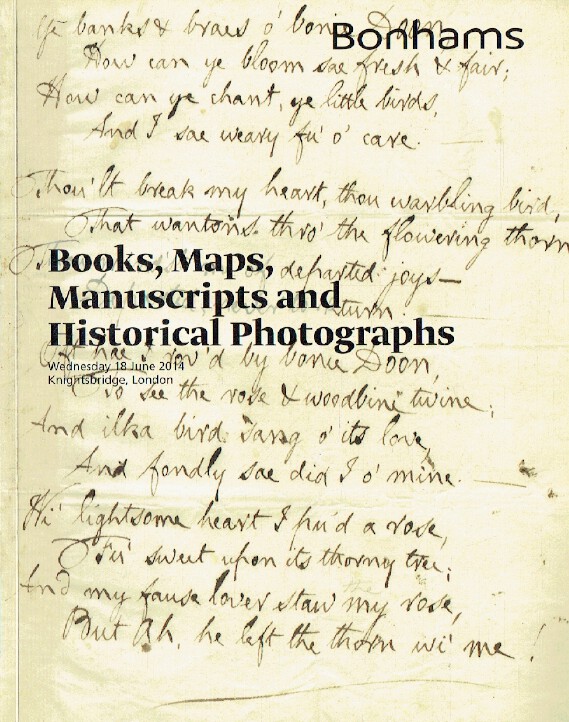 Bonhams
Ye banks & braes o' bonie Doon
How can ye bloom sae fresh & fair;
How can ye chant, ye little birds,
And I sae weary fu' o' care.
Thou'lt break my heart, thou warbling bird,
That wantons thro' the flowering thorn
departed joys—
turn.
Books, Maps,
Manuscripts and
Historical Photographs
Wednesday 18 June 2014
Knightsbridge, London
Oft hae I rov'd by bonie Doon,
To see the rose & woodbine twine;
And ilka bird sang o' its love,
And fondly sae did I o' mine.
Wi' lightsome heart I pu'd a rose,
Fu' sweet upon its thorny tree;
And my fause lover staw my rose,
But Ah, he left the thorn wi' me!